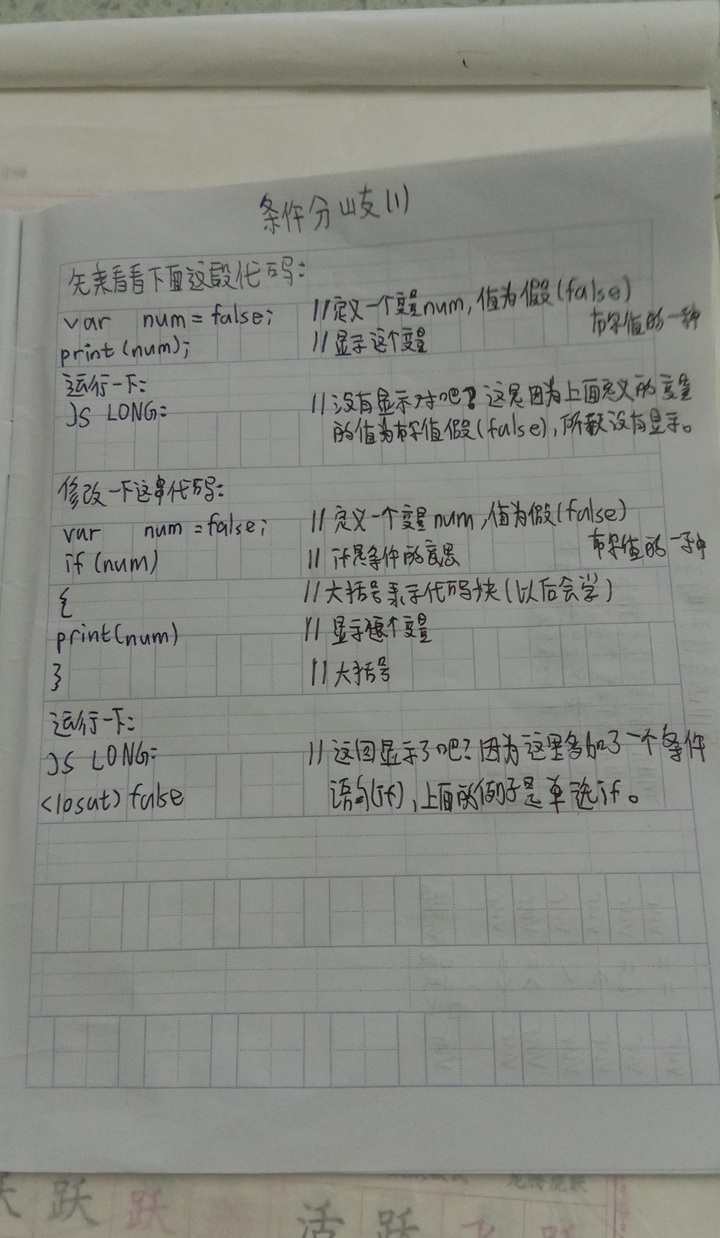 条件分岐(1)
先来看看下面这段代码:
var num = false; //定义一个变量num,值为假(false)
布尔值的一种
print(num); //显示这个变量
运行一下:
JS LONG: //没有显示对吧?这是因为上面定义的变量
的值为布尔值假(false),所以没有显示。
修改一下这串代码:
var num = false; //定义一个变量num,值为假(false)
布尔值的一种
if(num) //if是条件的意思
{ //大括号表示代码块(以后会学)
print(num) //显示这个变量
} //大括号
运行一下:
JS LONG: //这回显示了吧?因为这里多加了一个条件
<losat>false 语句(if),上面的例子是单选if。
跃 跃
活 跃 飞 跃